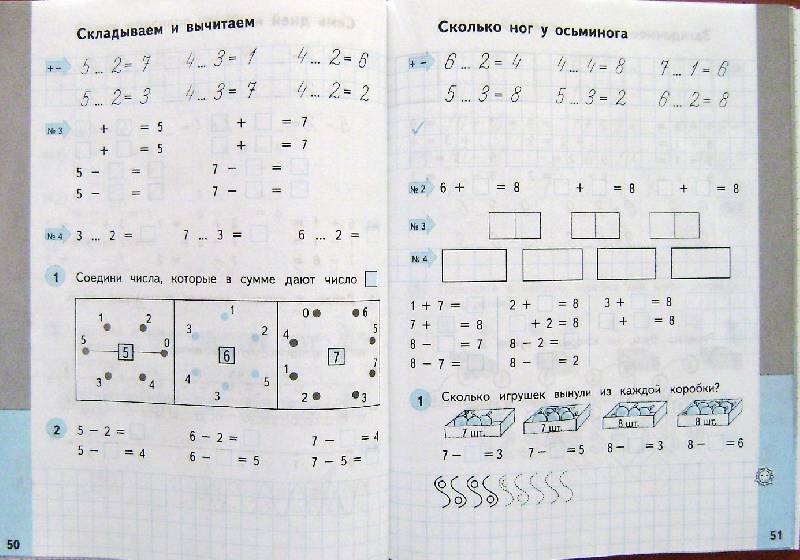 Складываем и вычитаем
+ – 5 ... 2 = 7 4 ... 3 = 1 4 ... 2 = 6
5 ... 2 = 3 4 ... 3 = 7 4 ... 2 = 2
№ 3 + = 5 + = 7
+ = 5 + = 7
5 – = 7 – =
5 – = 7 – =
№ 4 3 ... 2 = 7 ... 3 = 6 ... 2 =
1 Соедини числа, которые в сумме дают число
1 2 5 0 3 4 5
1 3 2 4 5 3 6
0 6 4 5 1 7 2 3 7
2 5 – 2 = 6 – 2 = 7 – = 4
5 – = 4 6 – = 5 7 – 5 =
50
Сколько ног у осьминога
+ – 6 ... 2 = 4 4 ... 4 = 8 7 ... 1 = 6
5 ... 3 = 8 5 ... 3 = 2 6 ... 2 = 8
№ 2 6 + = 8 + = 8 + = 8
№ 3
№ 4
1 + 7 = 2 + = 8 3 + = 8
7 + = 8 + 2 = 8 + = 8
8 – = 7 8 – 2 =
8 – 7 = 8 – = 2
1 Сколько игрушек вынули из каждой коробки?
7 шт. 7 шт. 8 шт. 8 шт.
7 – = 3 7 – = 5 8 – = 3 8 – = 6
51